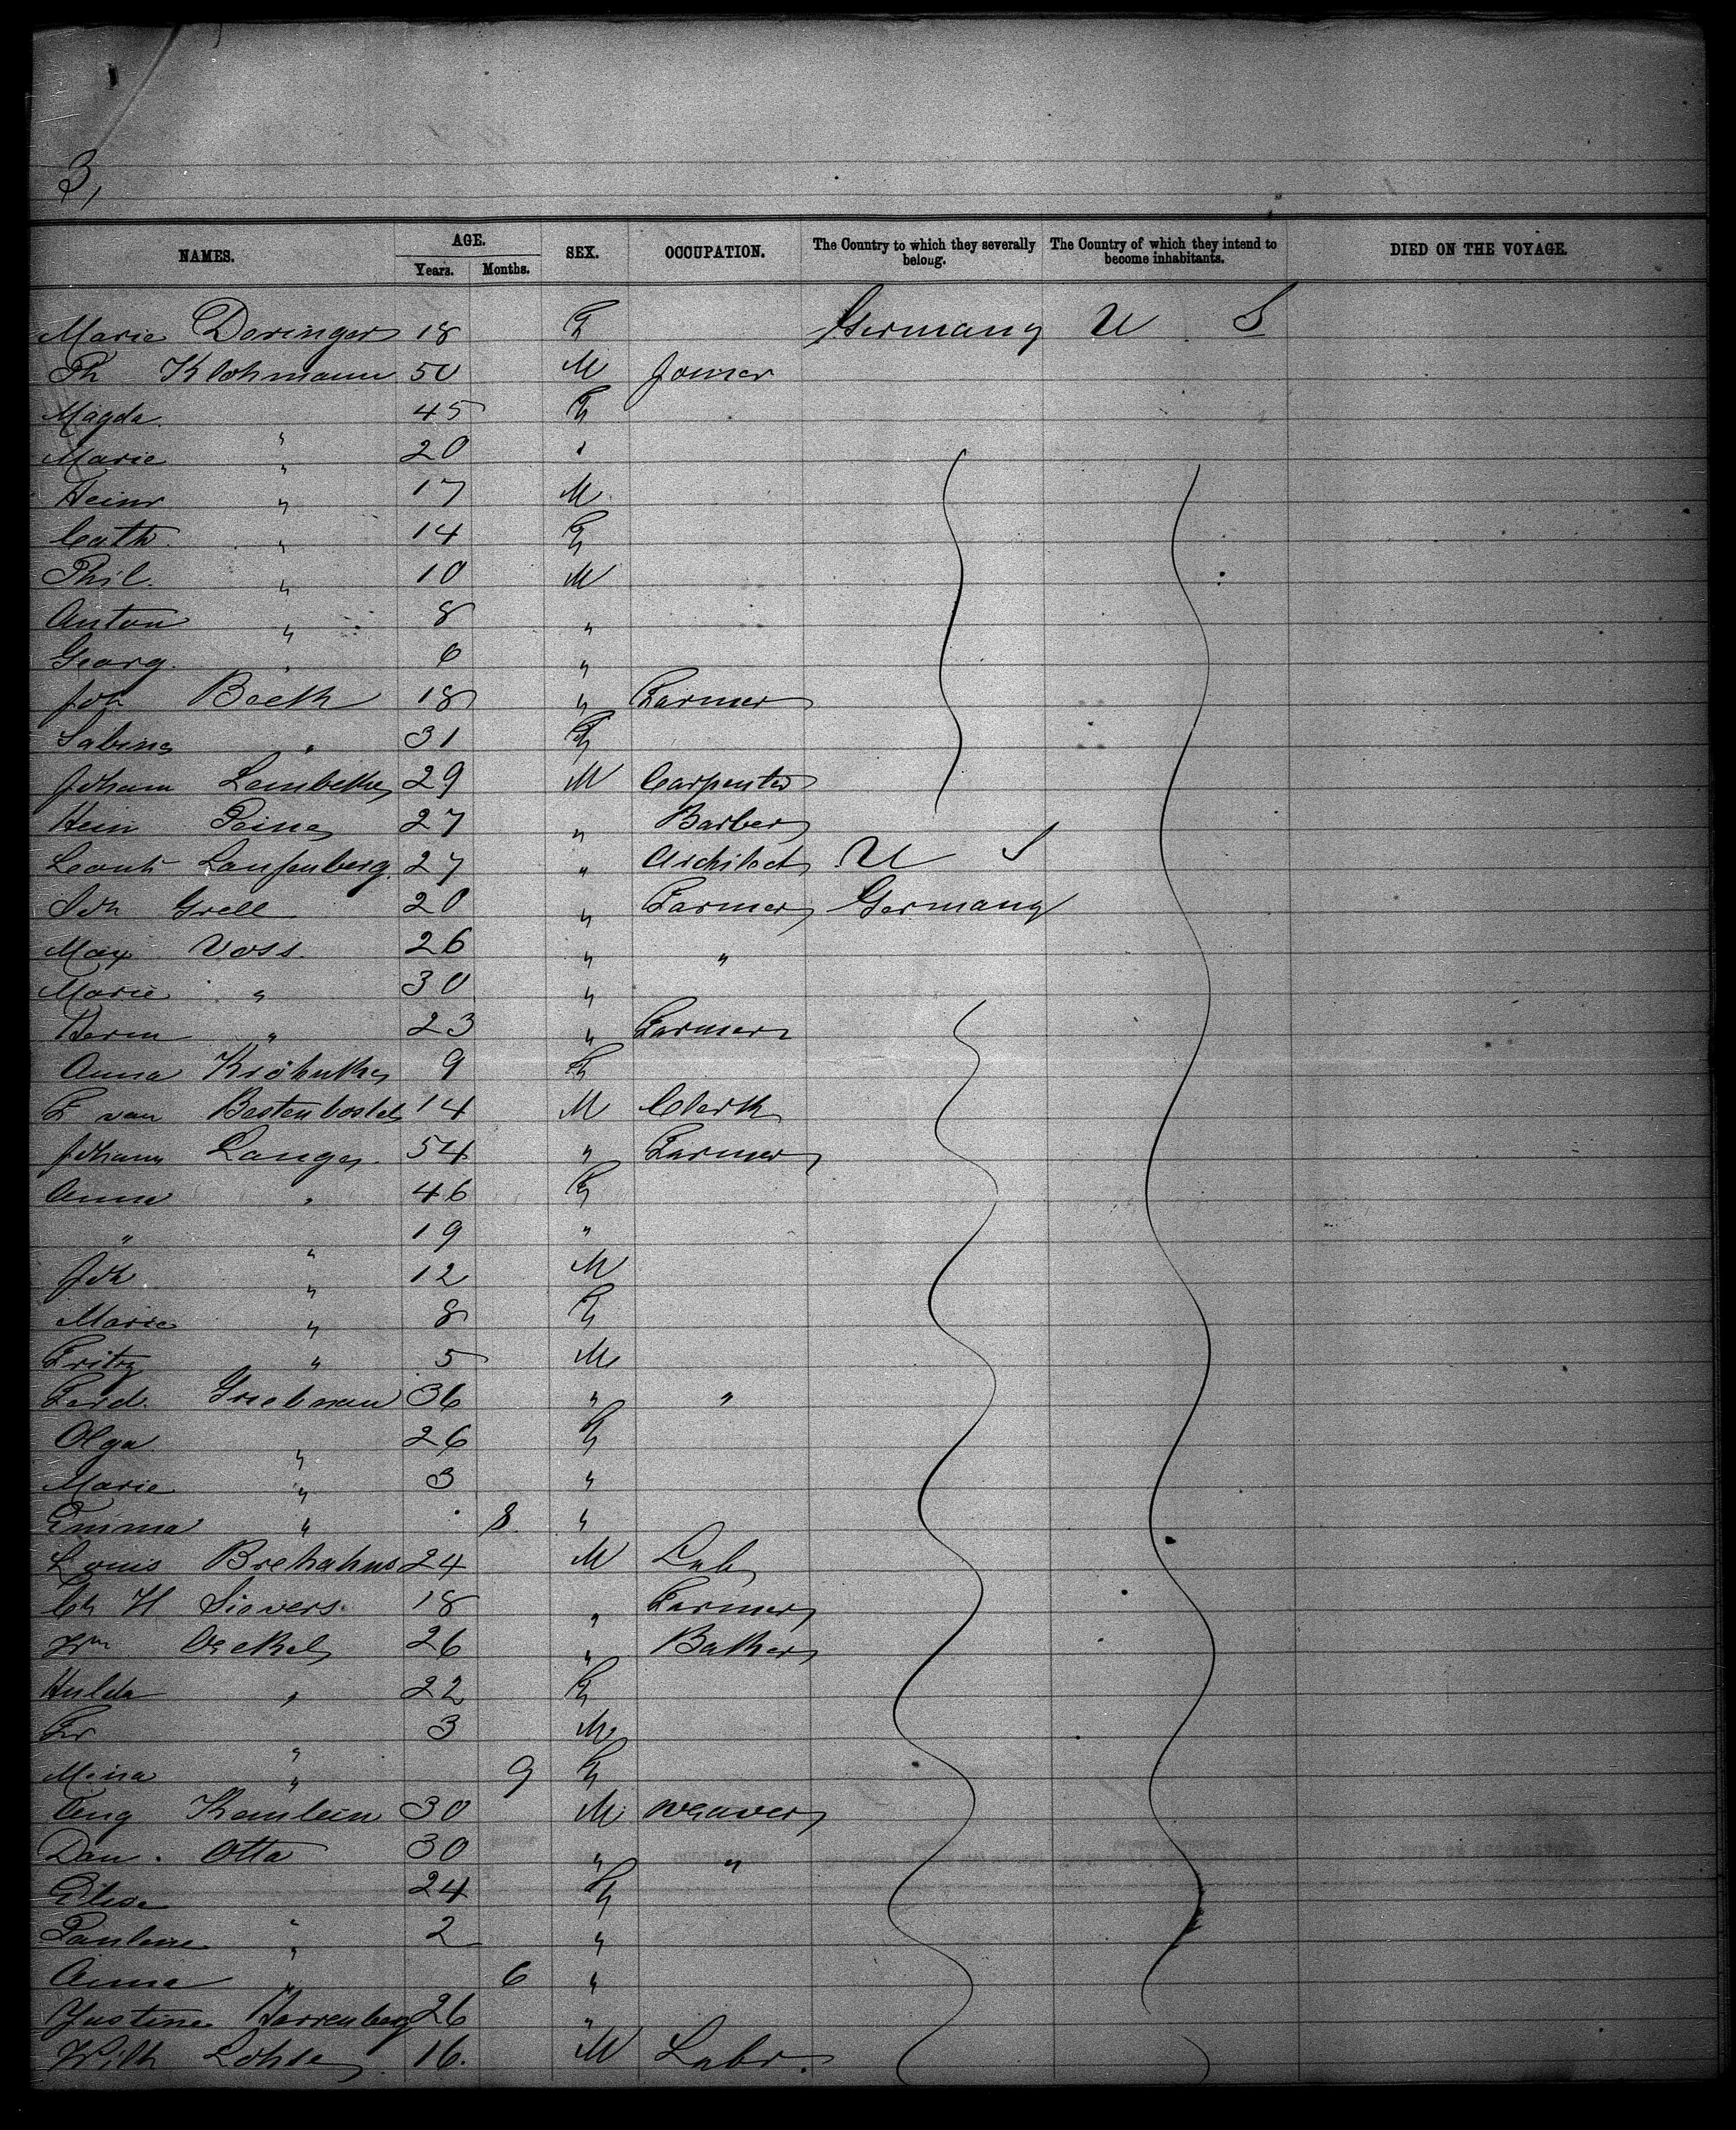 3,
NAMES. AGE. SEX. OCCUPATION. The Country to which they severally belong. The Country of which they intend to become inhabitants. DIED ON THE VOYAGE.
Years. Months.
Marie Deringer 18 F Germany U S
Ph Klohmann 50 M Joiner
Magda " 45 F
Marie " 20 "
Heinr " 17 M
Cath. " 14 F
Phil. " 10 M
Anton " 8 "
Georg. " 6 "
Joh Beek 18 " Farmer
Sabine " 31 F
Johann Lembeke 29 M Carpenter
Hein Peine 27 " Barber
Leonh Laufenberg. 27 " Architect U S
Joh Grell 20 " Farmer Germany
Max Voss. 26 " "
Marie " 30 "
Herm " 23 " Farmer
Anna 9 F
F van Bostenbostel 14 M Clerk
Johann Lange. 54 " Farmer
Anna " 46 F
" " 19 "
Joh " 12 M
Marie " 8 F
Fritz " 5 M
Ferd. 36 " "
Olga " 26 F
Marie " 3 "
Emma " 8. "
Louis 24 M Lab
Ch H Sievers. 18 " Farmer
Wm Oeckel 26 " Baker
Hulda " 22 F
Fr " 3 M
Mina " 9 F
Aug Kemlein 30 M. Weaver
Dan. Otto 30 " "
Elise " 24 F
Pauline " 2 "
Anna " 6 "
Justine Herrenberg 26 "
Wilh Lohse 16. M Labr.